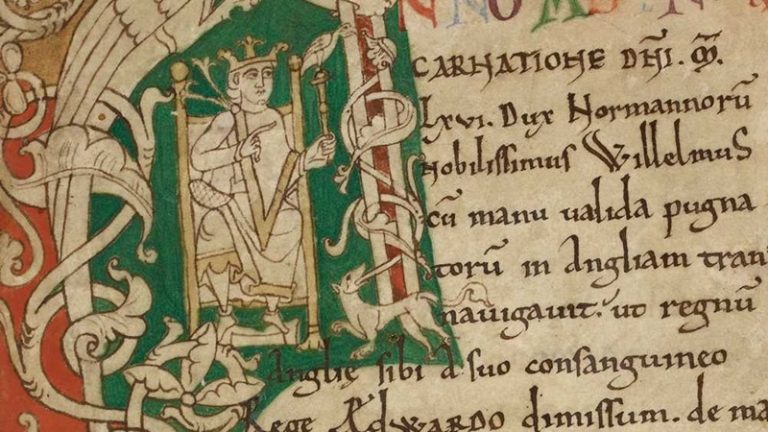 NNO AB IN
CARNATIONE DÑI. M̅.
lxvi. Dux Normannorū
nobilissimus Willelmus
cū manu valida pugna
torū in Angliam tran
navigavit. ut regnū
Anglię sibi a suo consanguineo
Rege Ædwardo dimissum. de ma